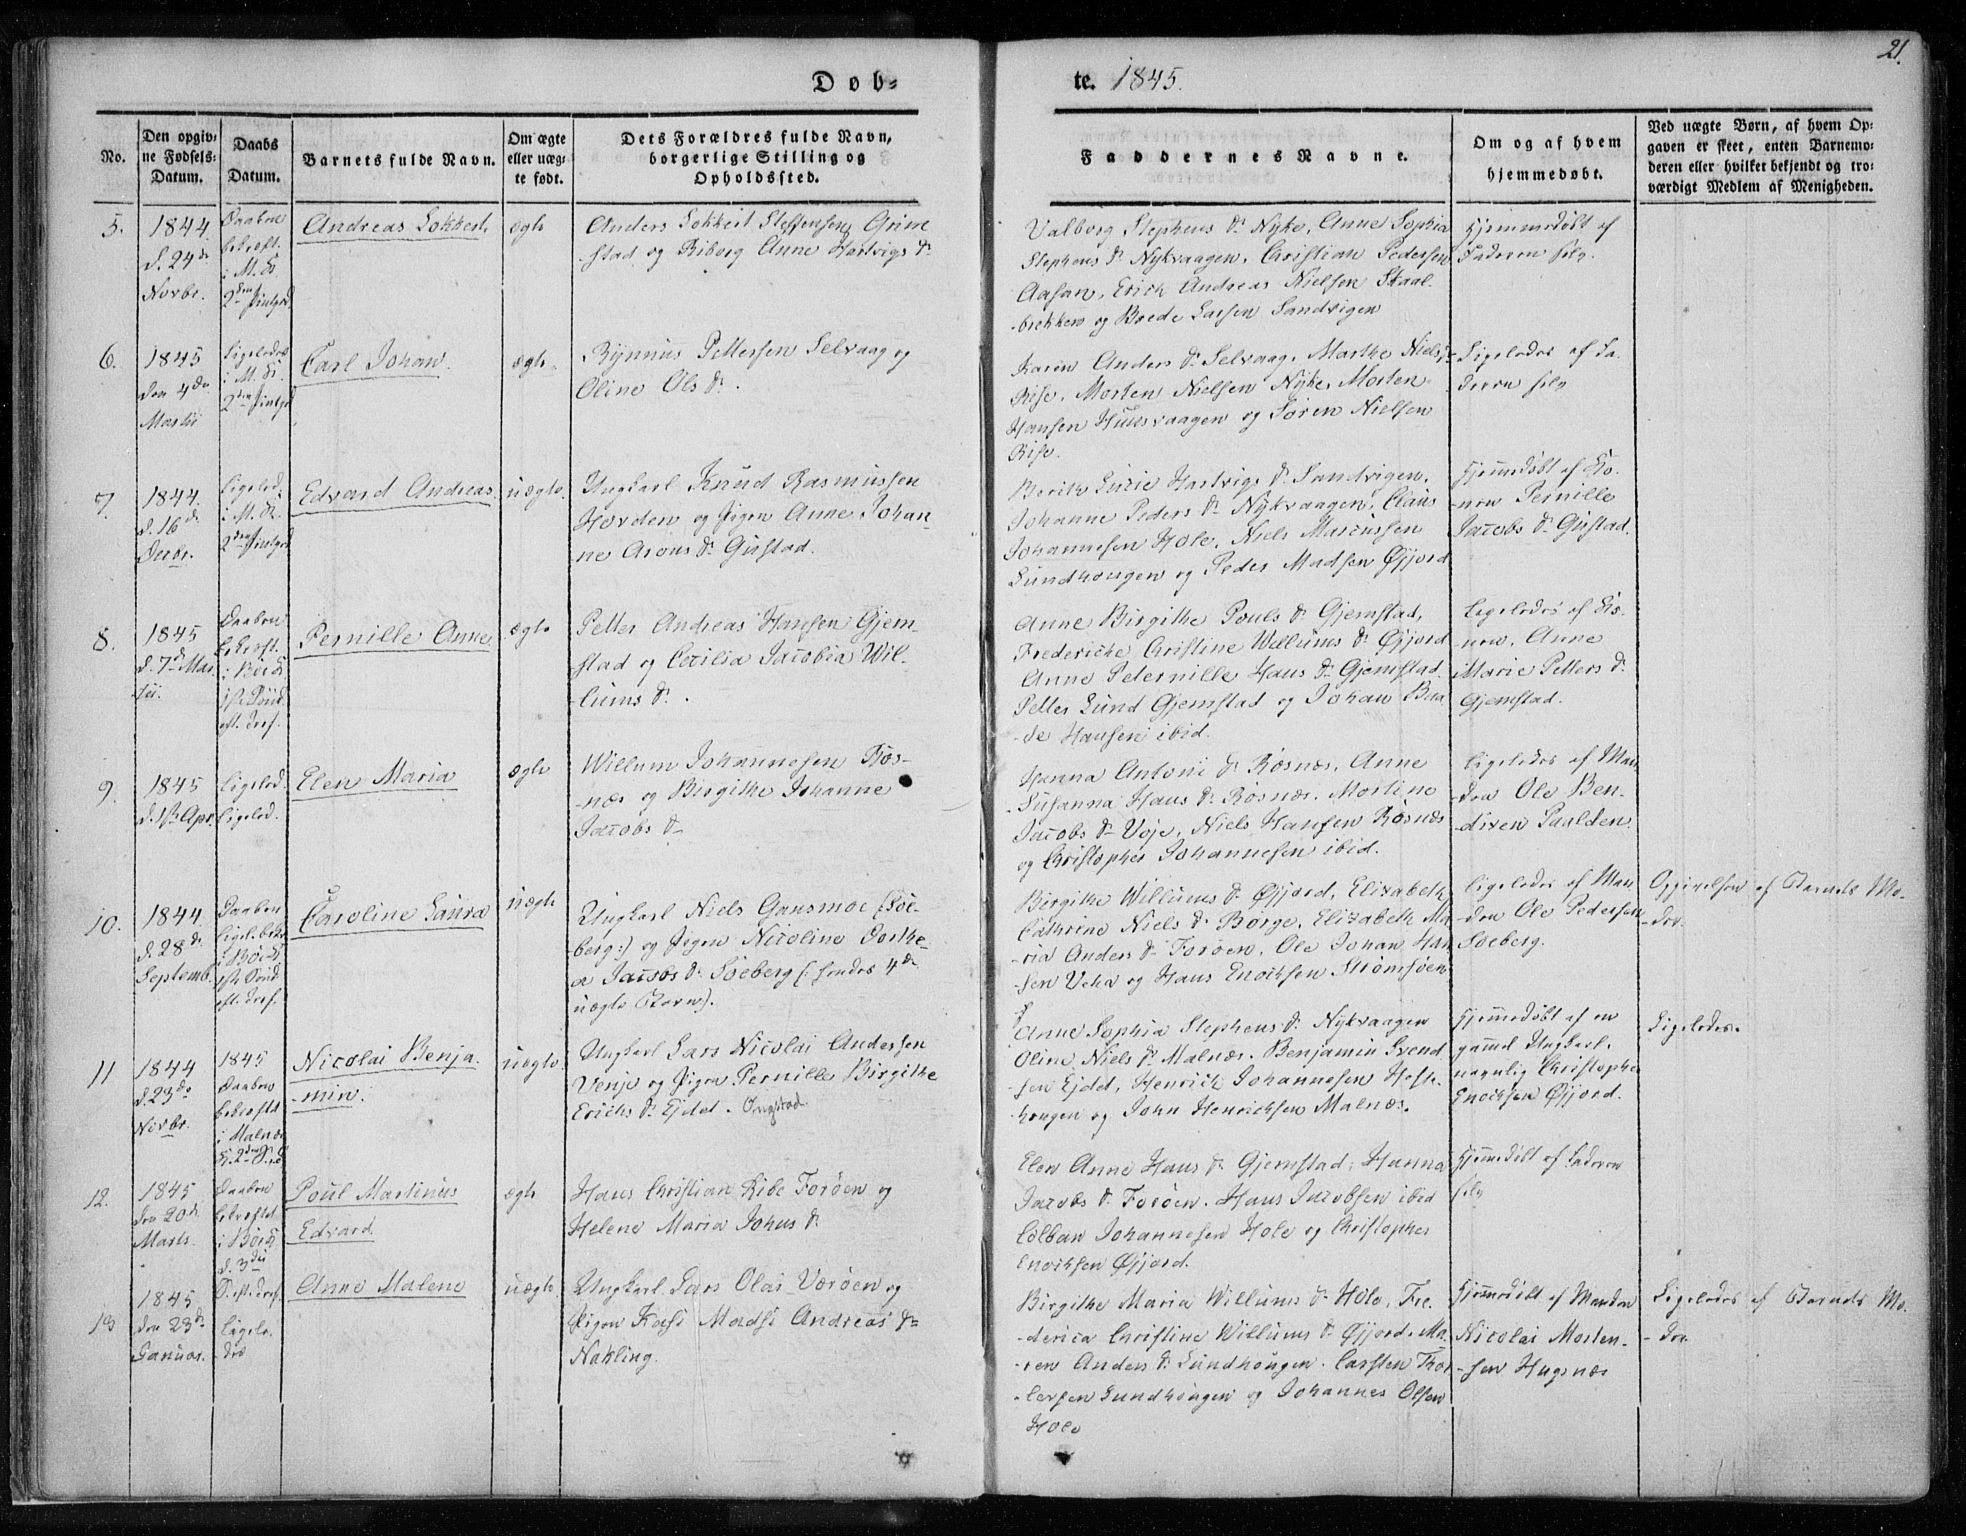 21.
Døb-
te. 1845.
No.
Den opgiv-
ne Fødsels-
Datum.
Daabs
Datum.
Barnets fulde Navn.
Om ægte
eller uæg-
te født.
Dets Forældres fulde Navn,
borgerlige Stilling og
Opholdssted.
Faddernes Navne.
Om og af hvem
hjemmedøbt.
Ved uægte Børn, af hvem Op-
gaven er skeet, enten Barnemo-
deren eller hvilket bekjendt og tro-
værdigt Medlem af Menigheden.
5.
1844
d. 24de
Novbr.
Daaben
bekræft.
i M. K.
2den Pintsed
Andreas Lokkert
ægte
Anders Lokkert Steffensen Grim
stad og Riborg Anne Hartvigs Dr
Valborg Stephens Dr Nyke, Anne Sophia
Stephens Dr Nykvaagen, Christian Pedersen
Aasan, Erich Andreas Nielsen Skaal-
brekken og Brede Larsen Sandvigen
Hjemmedøbt af
Faderen selv.
6.
1845
den 4de
Martii
Ligeledes
i M. K.
2den Pintsed
Carl Johan
ægte
Rynnius Pettersen Selvaag og
Oline Ols Dr.
Karen Anders Dr Selvaag, Marthe Niels
Rise, Morten Nielsen Nyke, Morten
Hansen Huusvaagen og Søren Nielsen
Rise.
Ligeledes af Fa-
deren selv
7.
1844
d. 16de
Decbr.
Ligeled.
i M. K.
2den Pintsed
Edvard Andreas
uægte
Ungkarl Knud Rasmussen
Horden og Pigen Anne Johan-
ne Arons Dr Gustad.
Berith Lucie Hartvigs Dr Sandvigen,
Johanne Peders Dr Nykvaagen, Claus
Johannesen Hole, Niels Marcussen
Sundhougen og Peder Madsen Øjjord
Hjemmedøbt af Ko-
nen Pernille
Jacobs Dr Gustad.
8.
1845
d. 7de Mar-
tii.
Daaben
bekræft.
i Bøe K.
1ste Sønd.
eft. Tref.
Pernille Anne
ægte
Petter Andreas Hansen Gjem-
stad og Cecilia Jacobia Wil-
lums Dr.
Anne Birgithe Pouls Dr Gjemstad,
Frederiche Christine Willums Dr Øjjord
Anne Peternille Hans Dr Gjemstad
Petter Lund Gjemstad og Johan Bua
de Hansen ibid.
Ligeledes af Ko-
nen Anne
Marie Petters Dr
Gjemstad.
9.
1845
d. 1ste Apr.
Ligeled.
Ligeled.
Elen Maria
ægte
Willum Johannesen Røs-
næs og Birgithe Johanne
Jacobs Dr
Hanna Antoni Dr Røsnæs, Anne
Susanna Hans Dr Røsnæs, Martine
Jacobs Dr Veje, Niels Hansen Røsnæs
og Christopher Johannesen ibid.
Ligeledes af Man
den Ole Ben-
dixen Saalden.
10.
1844
d. 28de
Septemb.
Daaben
i Bøe K.
1ste Sønd
eft. Tref.
Caroline Laura
uægte
Ungkarl Niels Gansmoe (Søe-
berg:) og Pigen Nicoline Dorthe-
a Jacobs Dr Søeberg (: hendes 4de
uægte Barn).
Birgithe Willums Dr Øjjord, Elizabeth
Cathrine Niels Dr Børge, Elizabeth Ma
ria Anders Dr Forøen, Ole Johan Han
sen Veha og Hans Enochsen Strømsøen
Ligeledes af Man
den Ole Pedersen
Søeberg.
Opgivelsen af Barnets Mo-
der.
11
1844
d. 23de
Novbr.
1845
Daaben
bekræftet
i Malnæs
K. 2den
Nicolai Benja-
min.
uægte
Ungkarl Lars Nicolai Andersen
Venje og Pigen Pernille Birgithe
Erichs Dr Ejdet. Ongstad
Anne Sophia Stephens Dr Nykvaagen
Oline Niels Dr Malnæs, Benjamin Svend
sen Ejdet, Henrich Johannesen Heste-
hougen og John Henrichsen Malnæs.
Hjemmedøbt af en
gammel Ungkarl,
navnlig Christopher
Enochsen Øjjord.
Ligeledes.
12.
1845
den 20de
Marts.
Daaben
bekræftet
i Bøe K
d. 3die
Poul Martinus
Edvard
ægte
Hans Christian Ribe Forøen og
Helene Maria Johns Dr
Elen Anne Hans Dr Gjemstad, Hanna
Jacobs Dr Forøen, Hans Jacobsen ibid
Colban Johannesen Hole og Christopher
Enochsen Øjjord.
Hjemmedøbt af Faderen
selv
13
1845
den 23de
Januar.
S. eft. Tref.
Ligele-
des
Anne Malene
uægte
Ungkarl Lars Olai Værøen og
Pigen Kasi Madsi Andreas Dr
Nakling.
Birgithe Maria Willums Dr Hole, Fre-
derica Christine Willums Dr Øjjord, Ma-
ren Anders Dr Sundhougen, Carsten Thor
lersen Sundhougen og Johannes Olsen
Hole
Hjemmedøbt af Manden
Nicolai Morten-
sen Hugsnæs
Ligeledes af Barnets Mo-
der